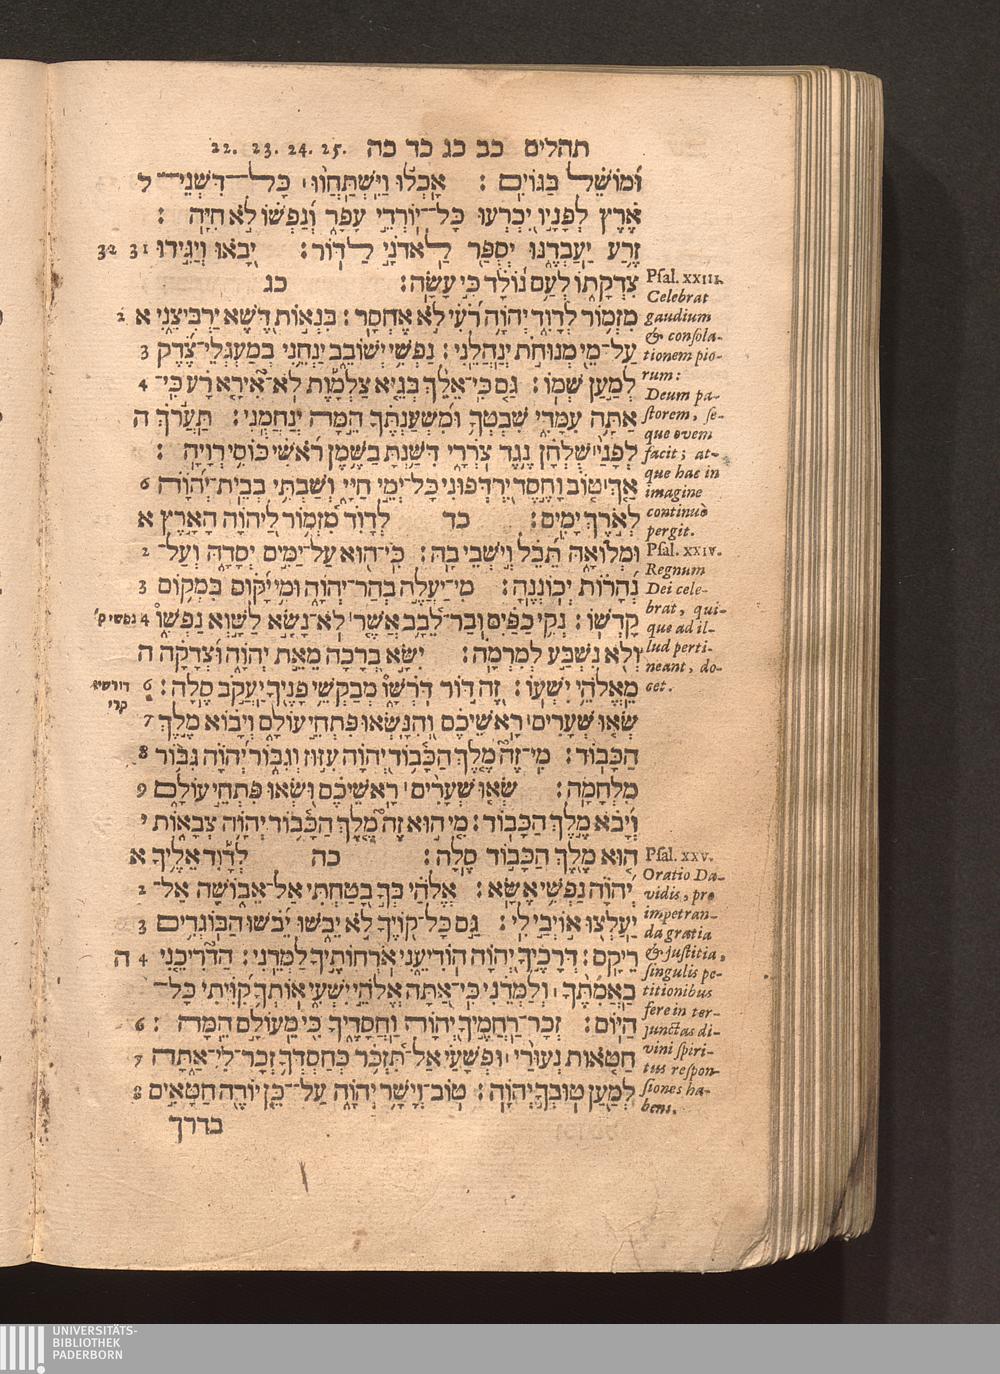 תהלים כב כג כד כה 22. 23. 24. 25.
וּמוֹשֵׁל בַּגּוֹיִם׃ אָכְלוּ וַיִּשְׁתַּחֲווּ כָּל־דִּשְׁנֵי־ ל
אֶרֶץ לְפָנָיו יִכְרְעוּ כָּל־יוֹרְדֵי עָפָר וְנַפְשׁוֹ לֹא חִיָּה׃
זֶרַע יַעַבְדֶנּוּ יְסֻפַּר לַאדֹנָי לַדּוֹר׃ יָבֹאוּ וְיַגִּידוּ 31 32
צִדְקָתוֹ לְעַם נוֹלָד כִּי עָשָׂה׃ כג
מִזְמוֹר לְדָוִד יְהֹוָה רֹעִי לֹא אֶחְסָר׃ בִּנְאוֹת דֶּשֶׁא יַרְבִּיצֵנִי א 2
עַל־מֵי מְנוּחֹת יְנַהֲלֵנִי׃ נַפְשִׁי יְשׁוֹבֵב יַנְחֵנִי בְמַעְגְּלֵי־צֶדֶק 3
לְמַעַן שְׁמוֹ׃ גַּם כִּי־אֵלֵךְ בְּגֵיא צַלְמָוֶת לֹא־אִירָא רָע כִּי־ 4
אַתָּה עִמָּדִי שִׁבְטְךָ וּמִשְׁעַנְתֶּךָ הֵמָּה יְנַחֲמֻנִי׃ תַּעֲרֹךְ ה
לְפָנַי שֻׁלְחָן נֶגֶד צֹרְרָי דִּשַּׁנְתָּ בַשֶּׁמֶן רֹאשִׁי כּוֹסִי רְוָיָה׃
אַךְ טוֹב וָחֶסֶד יִרְדְּפוּנִי כָּל־יְמֵי חַיָּי וְשַׁבְתִּי בְּבֵית־יְהֹוָה 6
לְאֹרֶךְ יָמִים׃ כד לְדָוִד מִזְמוֹר לַיהֹוָה הָאָרֶץ א
וּמְלוֹאָהּ תֵּבֵל וְיֹשְׁבֵי בָהּ׃ כִּי־הוּא עַל־יַמִּים יְסָדָהּ וְעַל־ 2
נְהָרוֹת יְכוֹנְנֶהָ׃ מִי־יַעֲלֶה בְהַר־יְהֹוָה וּמִי יָקוּם בִּמְקוֹם 3
קָדְשׁוֹ׃ נְקִי כַפַּיִם וּבַר־לֵבָב אֲשֶׁר לֹא־נָשָׂא לַשָּׁוְא נַפְשׁוֹ 4 נפשי ק'
וְלֹא נִשְׁבַּע לְמִרְמָה׃ יִשָּׂא בְרָכָה מֵאֵת יְהֹוָה וּצְדָקָה ה
מֵאֱלֹהֵי יִשְׁעוֹ׃ זֶה דּוֹר דֹּרְשָׁו מְבַקְשֵׁי פָנֶיךָ יַעֲקֹב סֶלָה׃ 6 דורשיו
קרי
שְׂאוּ שְׁעָרִים רָאשֵׁיכֶם וְהִנָּשְׂאוּ פִּתְחֵי עוֹלָם וְיָבוֹא מֶלֶךְ 7
הַכָּבוֹד׃ מִי־זֶה מֶלֶךְ הַכָּבוֹד יְהֹוָה עִזּוּז וְגִבּוֹר יְהֹוָה גִּבּוֹר 8
מִלְחָמָה׃ שְׂאוּ שְׁעָרִים רָאשֵׁיכֶם וּשְׂאוּ פִּתְחֵי עוֹלָם 9
וְיָבֹא מֶלֶךְ הַכָּבוֹד׃ מִי הוּא זֶה מֶלֶךְ הַכָּבוֹד יְהֹוָה צְבָאוֹת י
הוּא מֶלֶךְ הַכָּבוֹד סֶלָה׃ כה לְדָוִד אֵלֶיךָ א
יְהֹוָה נַפְשִׁי אֶשָּׂא׃ אֱלֹהַי בְּךָ בָטַחְתִּי אַל־אֵבוֹשָׁה אַל־ 2
יַעַלְצוּ אוֹיְבַי לִי׃ גַּם כָּל־קוֶֹיךָ לֹא יֵבֹשׁוּ יֵבֹשׁוּ הַבּוֹגְדִים 3
רֵיקָם׃ דְּרָכֶיךָ יְהֹוָה הוֹדִיעֵנִי אֹרְחוֹתֶיךָ לַמְּדֵנִי׃ הַדְרִיכֵנִי 4 ה
בַאֲמִתֶּךָ וְלַמְּדֵנִי כִּי־אַתָּה אֱלֹהֵי יִשְׁעִי אוֹתְךָ קִוִּיתִי כָּל־
הַיּוֹם׃ זְכֹר־רַחֲמֶיךָ יְהֹוָה וַחֲסָדֶיךָ כִּי מֵעוֹלָם הֵמָּה׃ 6
חַטֹּאות נְעוּרַי וּפְשָׁעַי אַל־תִּזְכֹּר כְּחַסְדְּךָ זְכָר־לִי־אַתָּה 7
לְמַעַן טוּבְךָ יְהֹוָה׃ טוֹב־וְיָשָׁר יְהֹוָה עַל־כֵּן יוֹרֶה חַטָּאִים 8
בדרך
Psal. XXIII.
Celebrat
gaudium
& consola-
tionem pio-
rum:
Deum pa-
storem, se-
que ovem
facit; at-
que hac in
imagine
continuò
pergit.
Psal. XXIV.
Regnum
Dei cele-
brat, qui-
que ad il-
lud perti-
neant, do-
cet.
Psal. XXV.
Oratio Da-
vidis, pro
impetran-
da gratia
& justitia,
singulis pe-
titionibus
fere in ter-
junctas di-
vini spiri-
tus respon-
siones ha-
bens.
UNIVERSITÄTS-
BIBLIOTHEK
PADERBORN